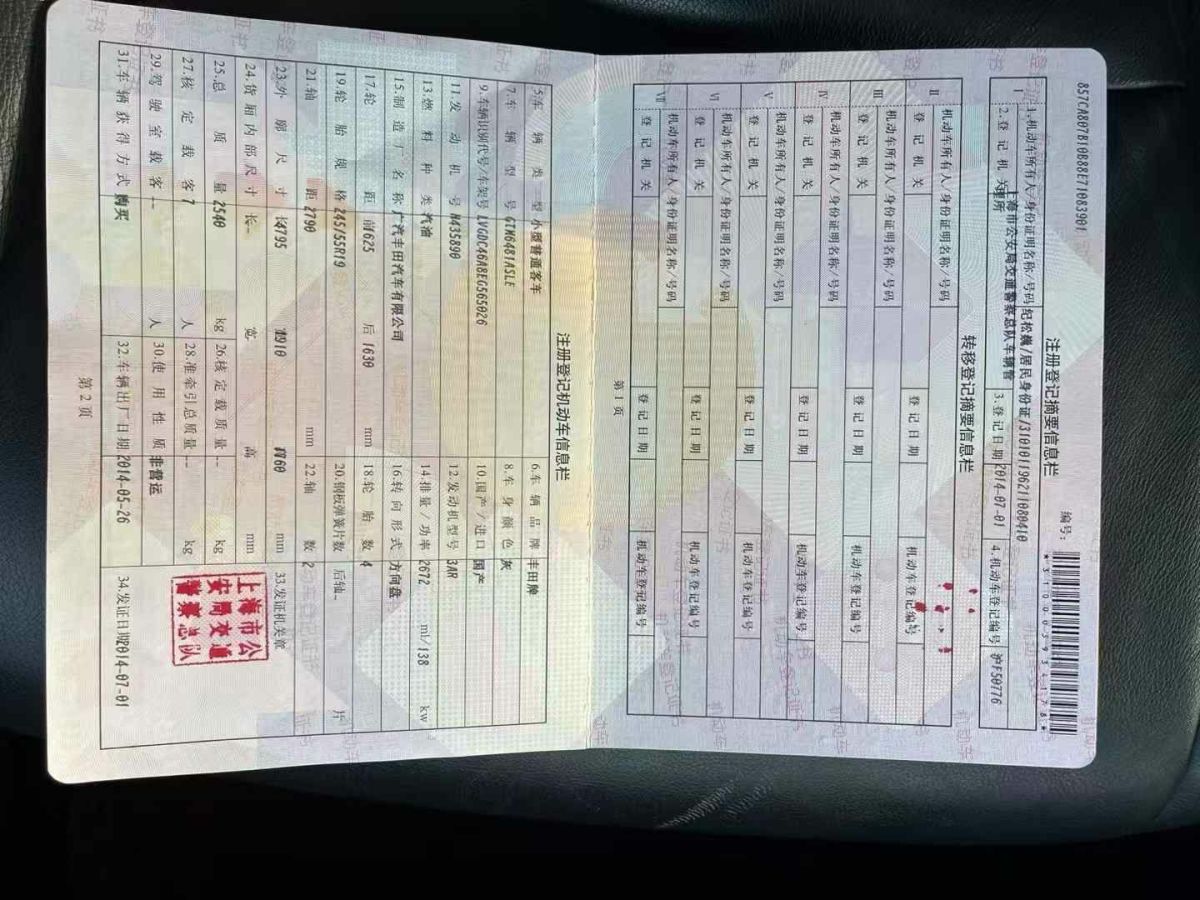 857CA807B10B88E71083901
编号:
*310003934178*
注册登记摘要信息栏
Ⅰ 1.机动车所有人/身份证明名称/号码 纪松巍/居民身份证/310101196211080410
2.登记机关 上海市公安局交通警察总队车辆管理所 3.登记日期 2014-07-01 4.机动车登记编号 沪F50776
转移登记摘要信息栏
Ⅱ 机动车所有人/身份证明名称/号码
登记机关 登记日期 机动车登记编号
Ⅲ 机动车所有人/身份证明名称/号码
登记机关 登记日期 机动车登记编号
Ⅳ 机动车所有人/身份证明名称/号码
登记机关 登记日期 机动车登记编号
Ⅴ 机动车所有人/身份证明名称/号码
登记机关 登记日期 机动车登记编号
Ⅵ 机动车所有人/身份证明名称/号码
登记机关 登记日期 机动车登记编号
Ⅶ 机动车所有人/身份证明名称/号码
登记机关 登记日期 机动车登记编号
第1页
注册登记机动车信息栏
5.车辆类型 小型普通客车 6.车辆品牌 丰田牌
7.车辆型号 GTM6481ASLE 8.车身颜色 灰
9.车辆识别代号/车架号 LVGDC46A8EG565026 10.国产/进口 国产
11.发动机号 H435890 12.发动机型号 3AR
13.燃料种类 汽油 14.排量/功率 2672 ml/138 kw
15.制造厂名称 广汽丰田汽车有限公司 16.转向形式 方向盘
17.轮距 前1625 后1630 mm 18.轮胎数 4
19.轮胎规格 245/55R19 20.钢板弹簧片数 后轴- 片
21.轴距 2790 mm 22.轴数 2
23.外廓尺寸 长4795 宽1910 高1760 mm 33.发证机关章
24.货厢内部尺寸 长-- 宽 高 mm
上海市公
安局交通
警察总队
25.总质量 2540 kg 26.核定载质量 -- kg
27.核定载客 7 人 28.准牵引总质量 -- kg
29.驾驶室载客 -- 人 30.使用性质 非营运
31.车辆获得方式 购买 32.车辆出厂日期 2014-05-26 34.发证日期 2014-07-01
第2页